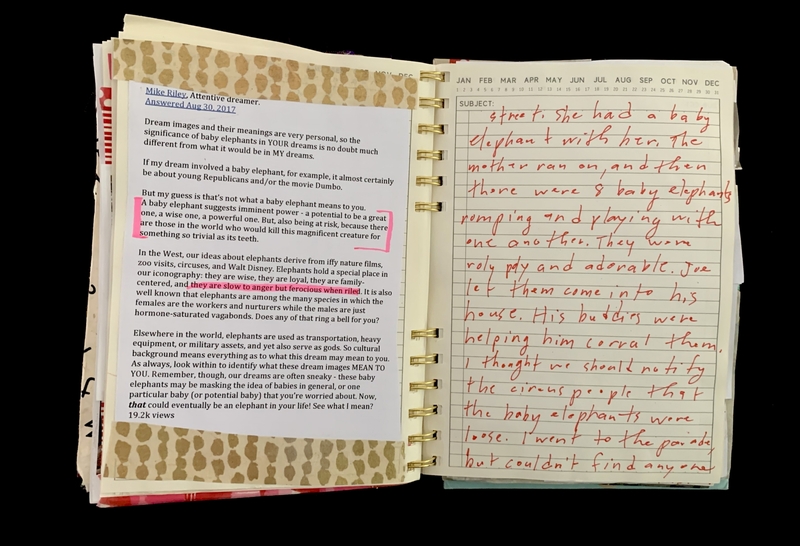 Mike Riley, Attentive dreamer.
Answered Aug 30, 2017
Dream images and their meanings are very personal, so the
significance of baby elephants in YOUR dreams is no doubt much
different from what it would be in MY dreams.
If my dream involved a baby elephant, for example, it almost certainly
be about young Republicans and/or the movie Dumbo.
But my guess is that's not what a baby elephant means to you.
A baby elephant suggests imminent power - a potential to be a great
one, a wise one, a powerful one. But, also being at risk, because there
are those in the world who would kill this magnificent creature for
something so trivial as its teeth.
In the West, our ideas about elephants derive from iffy nature films,
zoo visits, circuses, and Walt Disney. Elephants hold a special place in
our iconography: they are wise, they are loyal, they are family-
centered, and they are slow to anger but ferocious when riled. It is also
well known that elephants are among the many species in which the
females are the workers and nurturers while the males are just
hormone-saturated vagabonds. Does any of that ring a bell for you?
Elsewhere in the world, elephants are used as transportation, heavy
equipment, or military assets, and yet also serve as gods. So cultural
background means everything as to what this dream may mean to you.
As always, look within to identify what these dream images MEAN TO
YOU. Remember, though, our dreams are often sneaky - these baby
elephants may be masking the idea of babies in general, or one
particular baby (or potential baby) that you're worried about. Now,
that could eventually be an elephant in your life! See what I mean?
19.2k views
JAN FEB MAR APR MAY JUN JUL AUG SEP OCT NOV DEC
SUBJECT:
street. She had a baby
elephant with her. The
mother ran on, and then
there were 8 baby elephants
romping and playing with
one another. They were
roly poly and adorable. Joe
let them come into his
house. His buddies were
helping him corral them.
I thought we should notify
the circus people that
the baby elephants were
loose. I went to the parade,
but couldn't find anyone